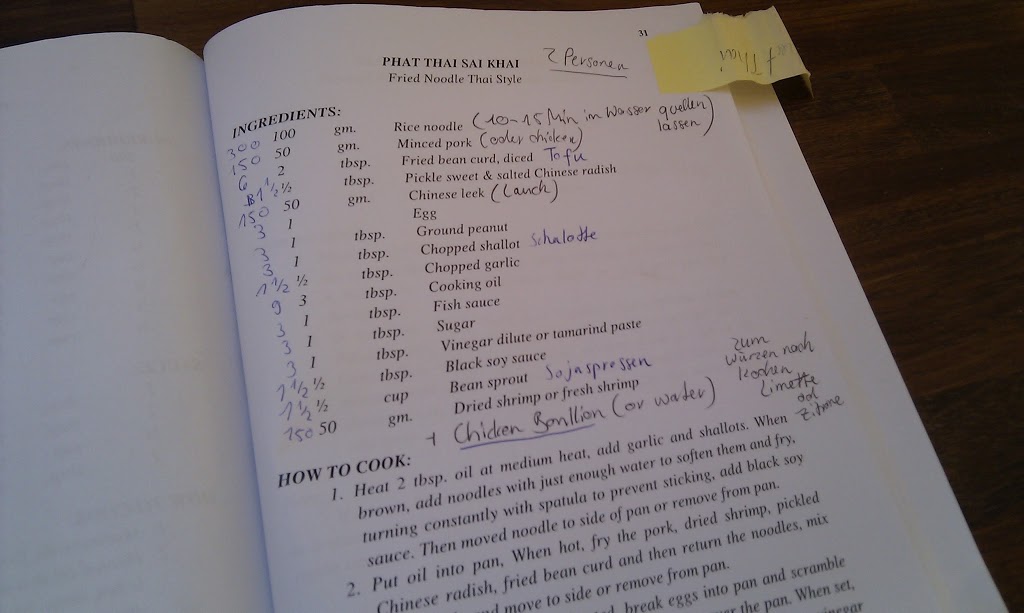 31
PHAT THAI SAI KHAI 2 Personen
Fried Noodle Thai Style
Thai
INGREDIENTS:
300 100 gm. Rice noodle (10-15 Min in Wasser quellen lassen)
150 50 gm. Minced pork (oder chicken)
6 2 tbsp. Fried bean curd, diced Tofu
1 1/2 ½ tbsp. Pickle sweet & salted Chinese radish
150 50 gm. Chinese leek (Lauch)
3 1 Egg
3 1 tbsp. Ground peanut
3 1 tbsp. Chopped shallot Schalotte
1 1/2 ½ tbsp. Chopped garlic
9 3 tbsp. Cooking oil
3 1 tbsp. Fish sauce
3 1 tbsp. Sugar
3 1 tbsp. Vinegar dilute or tamarind paste
1 1/2 ½ tbsp. Black soy sauce
1 1/2 ½ cup Bean sprout Sojasprossen
150 50 gm. Dried shrimp or fresh shrimp
+ Chicken Bouillion (or water)
zum
würzen nach
kochen
Limette
od
Zitrone
HOW TO COOK:
1. Heat 2 tbsp. oil at medium heat, add garlic and shallots. When
brown, add noodles with just enough water to soften them and fry,
turning constantly with spatula to prevent sticking, add black soy
sauce. Then moved noodle to side of pan or remove from pan.
2. Put oil into pan, When hot, fry the pork, dried shrimp, pickled
Chinese radish, fried bean curd and then return the noodles, mix
and move to side or remove from pan.
break eggs into pan and scramble
the pan. When set,
vinegar